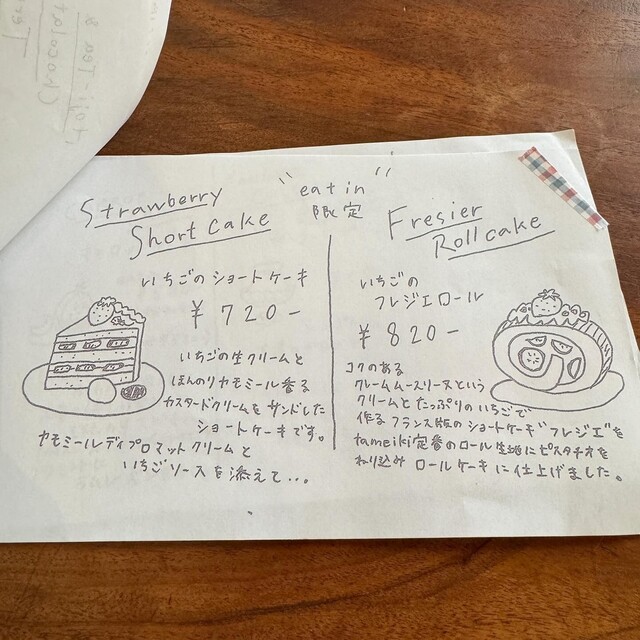 "eat in"
限定
Strawberry
Short Cake
いちごのショートケーキ
¥720-
いちごの生クリームと
ほんのりカモミール香る
カスタードクリームをサンドした
ショートケーキです。
カモミールディプロマットクリームと
いちごソースを添えて...
Fresier
Roll cake
いちごの
フレジエロール
¥820-
コクのある
クレームムースリーヌという
クリームとたっぷりのいちごで
作るフランス版のショートケーキ"フレジエ"を
tameiki定番のロール生地にピスタチオを
ねり込みロールケーキに仕上げました。